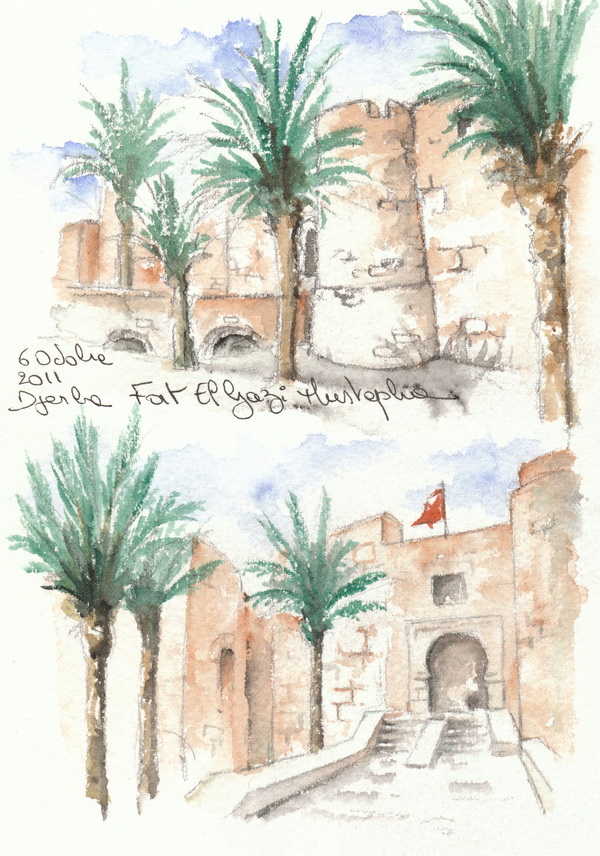 6 Octobre
2011
Djerba Fort El Gazi Mustapha